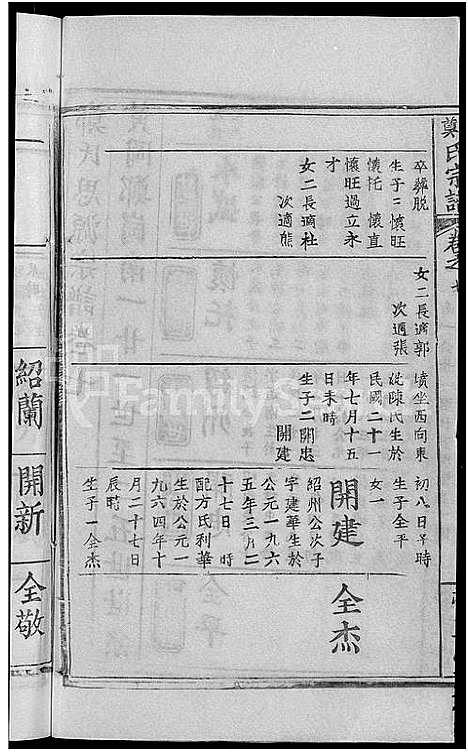 鄭氏宗譜
卷之
卒葬脫
生子二懷旺
懷托 懷直
懷旺過立永
才
女二長適杜
次適熊
女二長適郭
次適張
墳坐西向東
妣陳氏生於
民國二十一
年七月十五
日未時
生子二開忠
開建
初八日子時
生子全平
女一
開建
紹州公次子
字建華生於
公元一九六
五年三月二
十七日 時
配方氏利華
生於公元一
九六四年十
月二十七日
辰時
生子一全杰
全杰
紹蘭
開新
全敬
FamilyS